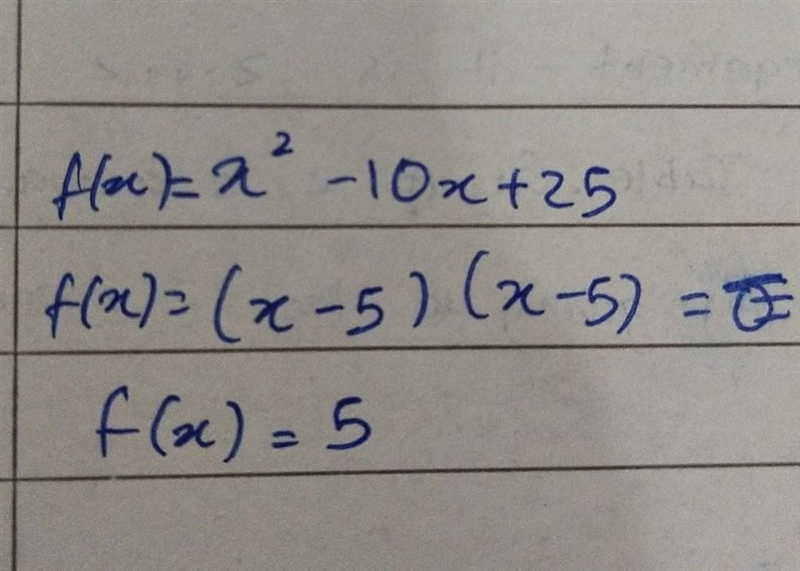 f(x) = x² - 10x + 25
f(x) = (x - 5) (x - 5) =
f(x) = 5